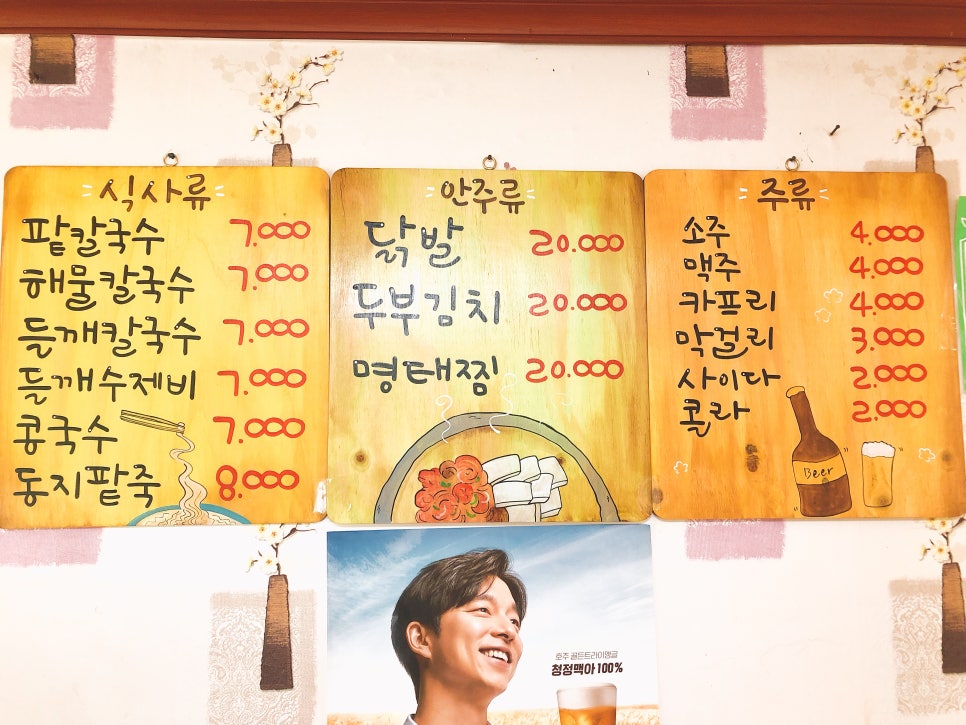 식사류
팥칼국수 7.000
해물칼국수 7.000
들깨칼국수 7.000
들깨수제비 7.000
콩국수 7.000
동지팥죽 8.000
안주류
닭발 20.000
두부김치 20.000
명태찜 20.000
주류
소주 4.000
맥주 4.000
카프리 4.000
막걸리 3.000
사이다 2.000
콜라 2.000
Beer
호주 골든트라이앵글
청정맥아 100%